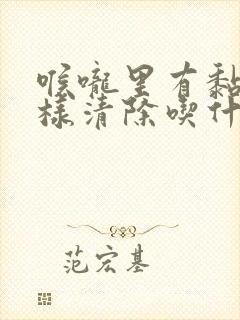 喉咙里有黏
样清除喫什
范宏基